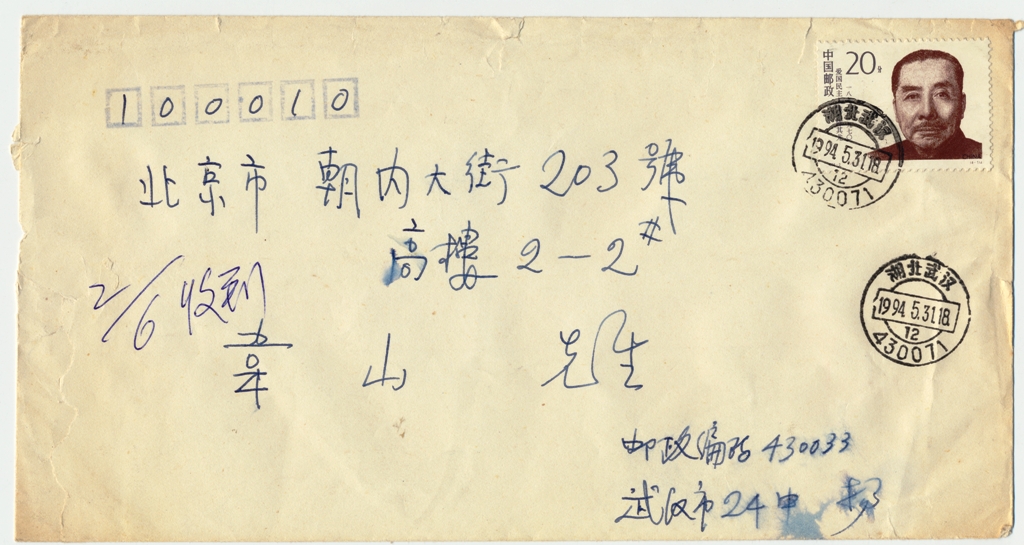 100010
中国邮政
20分
爱国民主
湖北武汉
1994.5.31.18
12
430071
北京市 朝内大街 203 號
高樓 2-2#
2/6 收到
山 先生
湖北武汉
1994.5.31.18
12
430071
邮政编码 430033
武汉市 24 中 杨